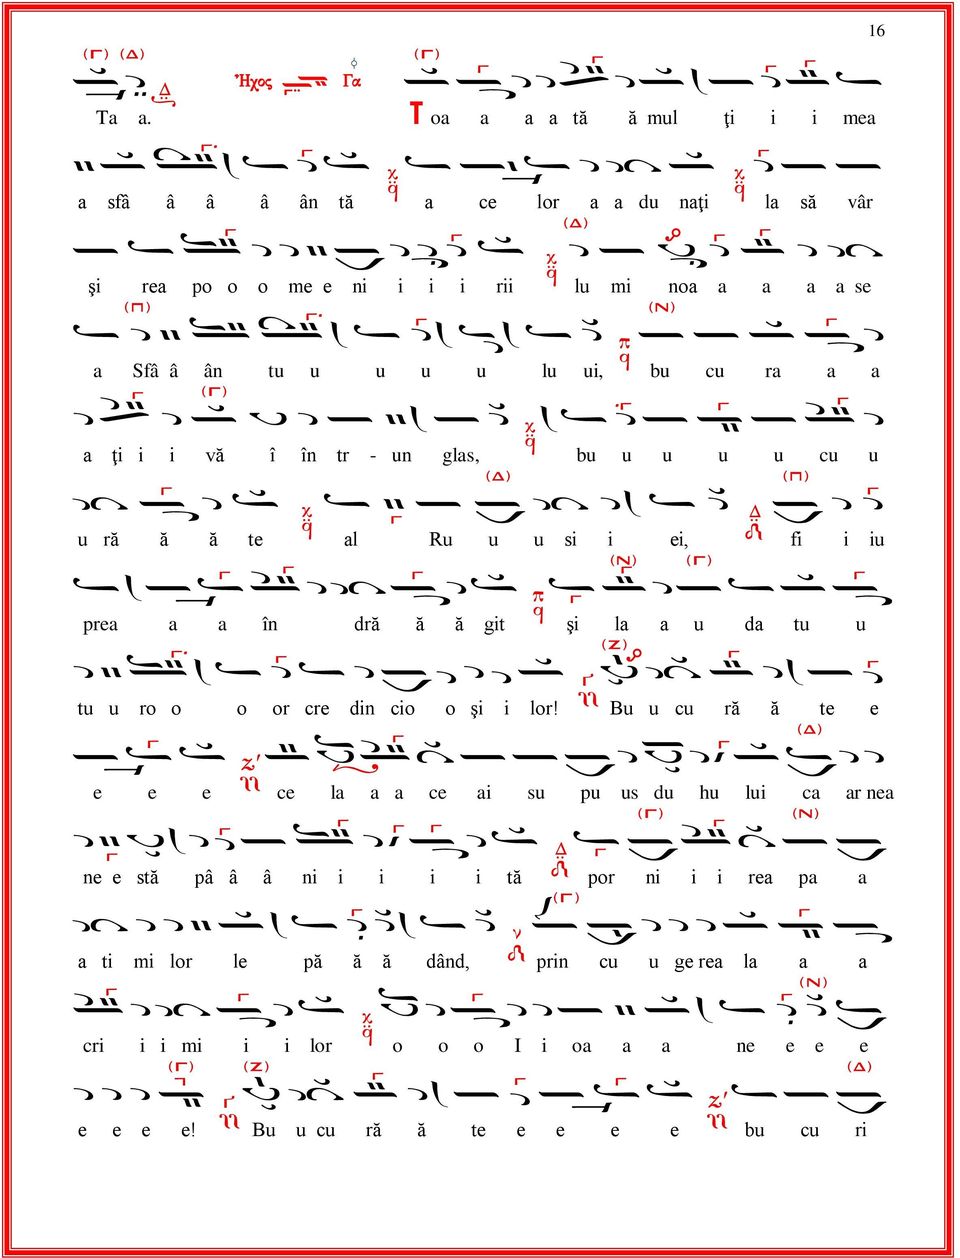 16
(Γ) (Δ) (Γ)
Ἦχος Γα
Ta a. Toa a a a tă ă mul ţi i i mea
a sfâ â â â ân tă a ce lor a a du naţi la să vâr
(Δ)
şi rea po o o me e ni i i i rii lu mi noa a a a a se
(Π) (Ν)
a Sfâ â ân tu u u u u lu ui, bu cu ra a a
(Γ)
a ţi i i vă î în tr - un glas, bu u u u u cu u
(Δ) (Π)
u ră ă ă te al Ru u u si i ei, fi i iu
(Ν) (Γ)
prea a a în dră ă ă git şi la a u da tu u
(Ζ)
tu u ro o o or cre din cio o şi i lor! Bu u cu ră ă te e
(Δ)
e e e ce la a a ce ai su pu us du hu lui ca ar nea
(Γ) (Ν)
ne e stă pâ â â ni i i i i tă por ni i i rea pa a
(Γ)
a ti mi lor le pă ă ă dând, prin cu u ge rea la a a
(Ν)
cri i i mi i i lor o o o I i oa a a ne e e e
(Γ) (Ζ) (Δ)
e e e e! Bu u cu ră ă te e e e e bu cu ri